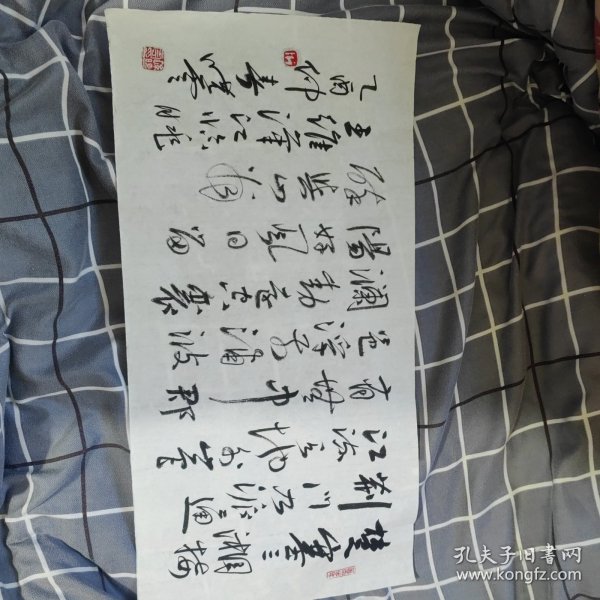 楚塞三湘接
荆门九派通
江流天地外山
色有無中郡
邑浮前浦波
澜動遠空襄
陽好風日留
醉與山翁
王维漢江临
乙酉仲春
孔夫子旧书网
www.kongfz.com